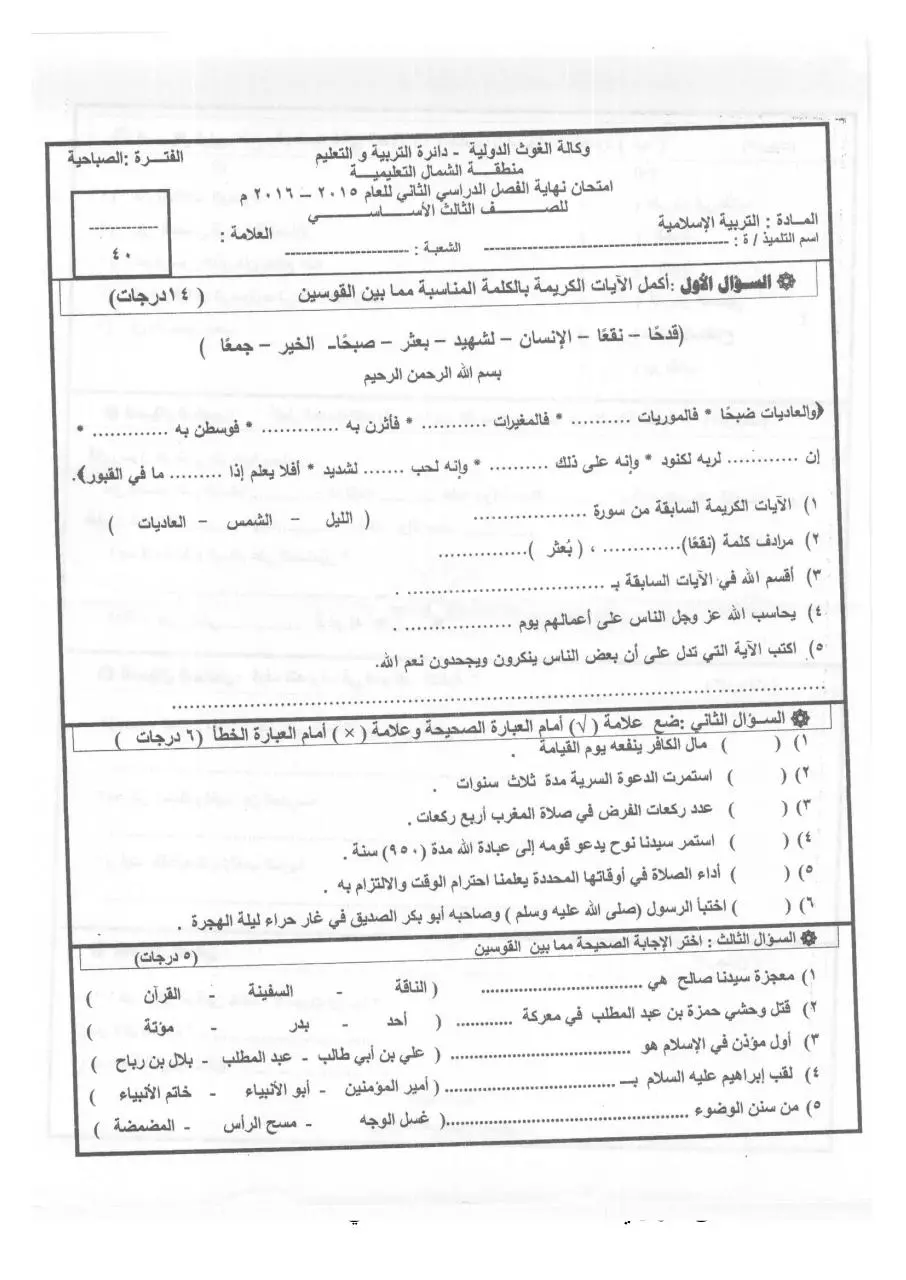 وكالة الغوث الدولية - دائرة التربية و التعليم
الفترة :الصباحية
منطقة الشمال التعليمية
امتحان نهاية الفصل الدراسي الثاني للعام ٢٠١٥ – ٢٠١٦ م
للصف الثالث الأساسي
المادة : التربية الإسلامية
العلامة :
اسم التلميذ / ة : ------------------------------ الشعبة : ------------------
-----------
٤٠
۞ السؤال الأول :أكمل الآيات الكريمة بالكلمة المناسبة مما بين القوسين ( ١٤درجات)
(قدحًا – نقعًا – الإنسان – لشهيد – بعثر – صبحًا- الخير – جمعًا )
بسم الله الرحمن الرحيم
﴿والعاديات ضبحًا * فالموريات .......... * فالمغيرات .......... * فأثرن به ............ * فوسطن به ............ *
إن ............ لربه لكنود * وإنه على ذلك .......... * وإنه لحب ....... لشديد * أفلا يعلم إذا ......... ما في القبور﴾.
١) الآيات الكريمة السابقة من سورة .................. ( الليل - الشمس - العاديات )
٢) مرادف كلمة (نقعًا)............. ، ( بُعثر )...............
٣) أقسم الله في الآيات السابقة بـ ............................ .
٤) يحاسب الله عز وجل الناس على أعمالهم يوم .................. .
٥) اكتب الآية التي تدل على أن بعض الناس ينكرون ويجحدون نعم الله.
................................................................................
۞ السؤال الثاني :ضع علامة (√) أمام العبارة الصحيحة وعلامة (×) أمام العبارة الخطأ (٦ درجات )
١) ( ) مال الكافر ينفعه يوم القيامة .
٢) ( ) استمرت الدعوة السرية مدة ثلاث سنوات .
٣) ( ) عدد ركعات الفرض في صلاة المغرب أربع ركعات .
٤) ( ) استمر سيدنا نوح يدعو قومه إلى عبادة الله مدة (٩٥٠) سنة .
٥) ( ) أداء الصلاة في أوقاتها المحددة يعلمنا احترام الوقت والالتزام به .
٦) ( ) اختبأ الرسول (صلى الله عليه وسلم ) وصاحبه أبو بكر الصديق في غار حراء ليلة الهجرة .
۞ السؤال الثالث : اختر الإجابة الصحيحة مما بين القوسين (٥ درجات)
١) معجزة سيدنا صالح هي .......................... ( الناقة - السفينة - القرآن )
٢) قتل وحشي حمزة بن عبد المطلب في معركة ............ ( أحد - بدر - مؤتة )
٣) أول مؤذن في الإسلام هو .............................. ( علي بن أبي طالب - عبد المطلب - بلال بن رباح )
٤) لقب إبراهيم عليه السلام بـ ..............................( أمير المؤمنين - أبو الأنبياء - خاتم الأنبياء )
٥) من سنن الوضوء ........................................( غسل الوجه - مسح الرأس - المضمضة )